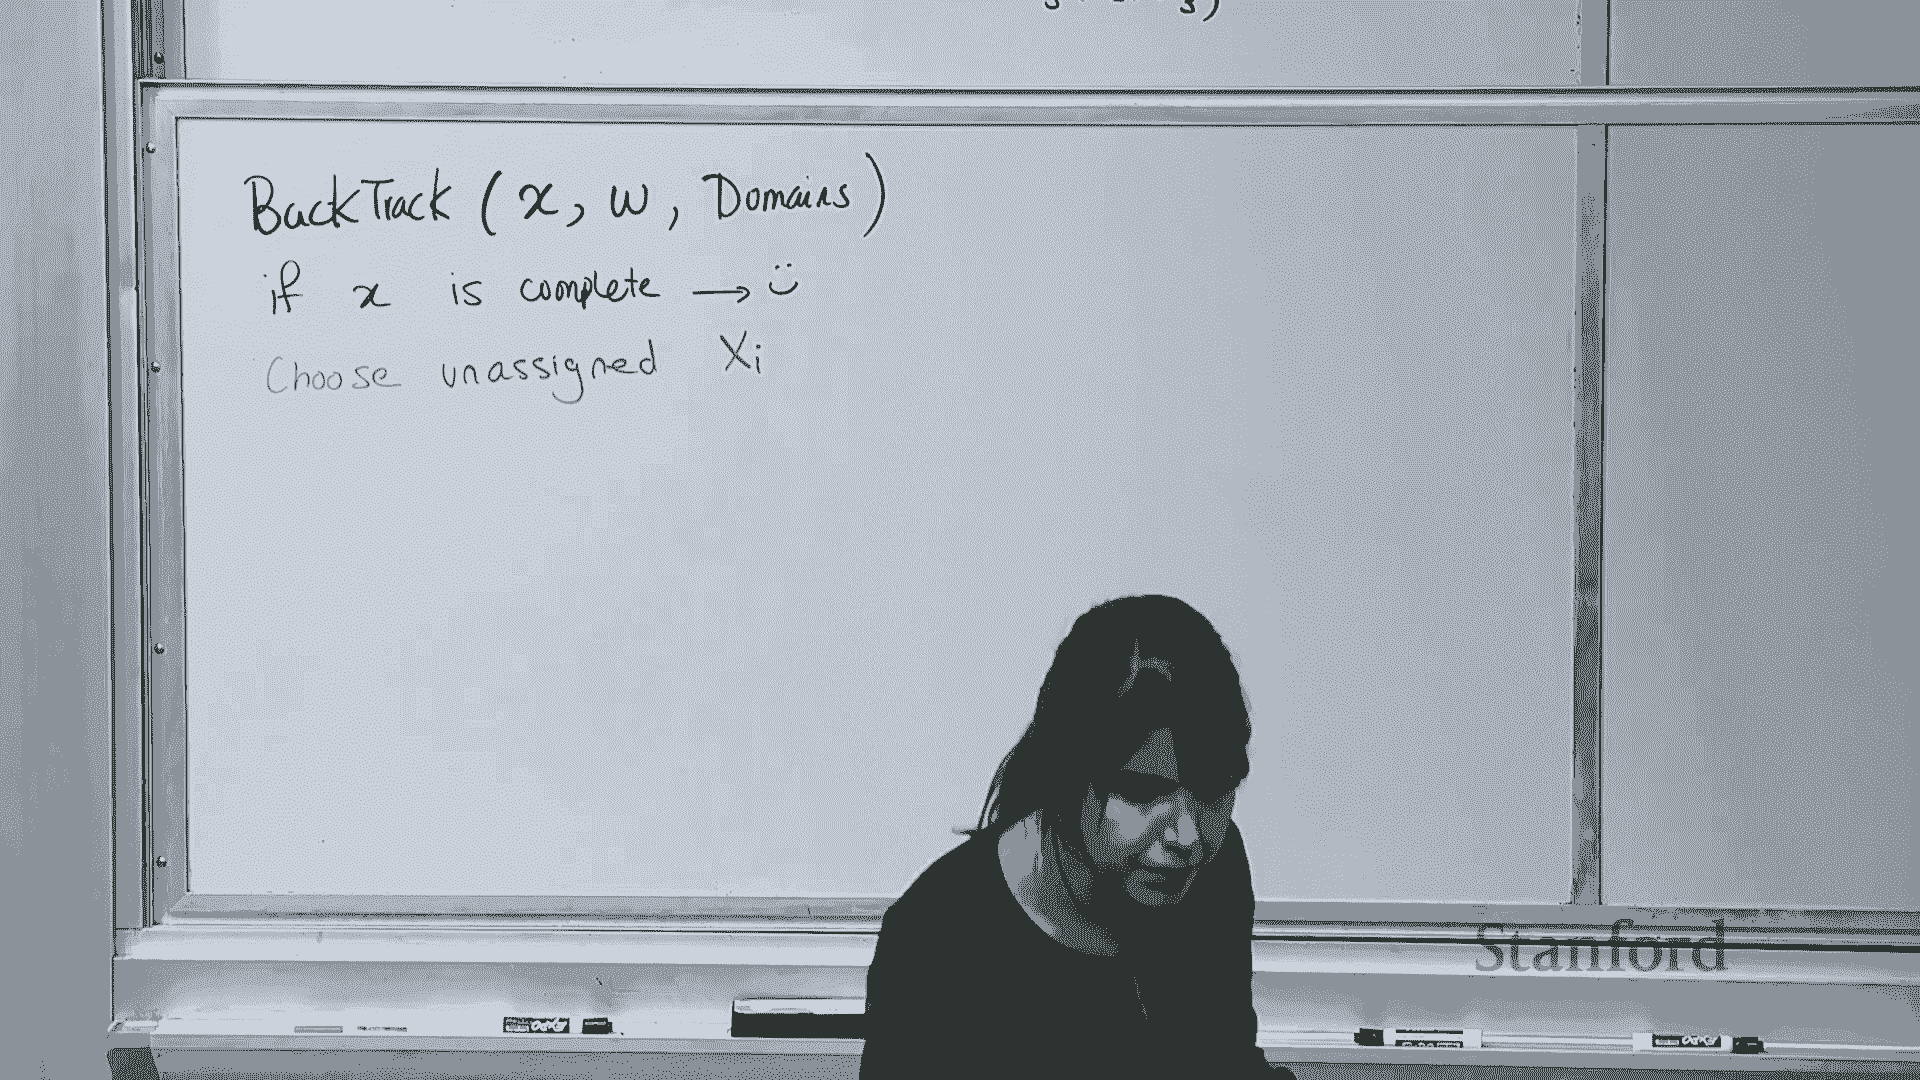 BackTrack (x, w, Domains)
if x is complete → ⍨
Choose unassigned Xi
Stanford
EXPO
EXPO